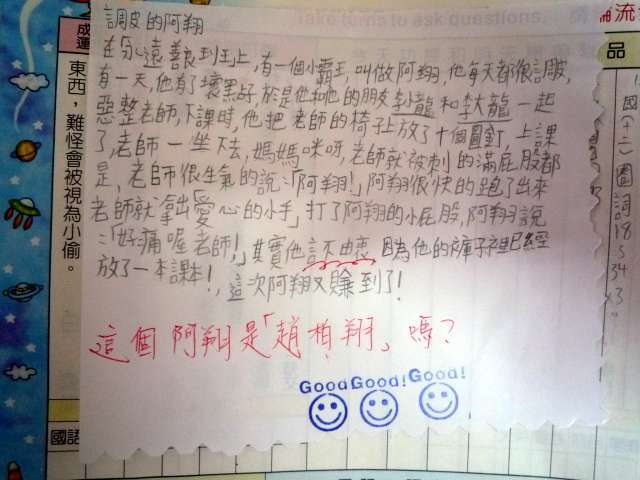 調皮的阿翔
在分心遠善良到班上,有一個小霸王,叫做阿翔,他每天都很調皮,
有一天,他有了壞點子,於是他和他的朋友李小龍和李大龍一起
惡整老師,下課時,他把老師的椅子上放了十個圖釘,上課
了,老師一坐下去,媽媽咪呀,老師就被刺的滿屁股都
是,老師很生氣的說:「阿翔!」阿翔很快的跑了出來
老師就拿出愛心的小手,打了阿翔的小屁股,阿翔說
:「好痛喔老師!」其實他言不由衷 因為他的褲子裡已經
放了一本課本!,這次阿翔又賺到了!
這個阿翔是「趙柏翔」嗎?
Good! Good! Good!
Take turns to ask questions.
東西,難怪會被視為小偷。
國語
品
流
國(十二)圈詞18 5 34 x3